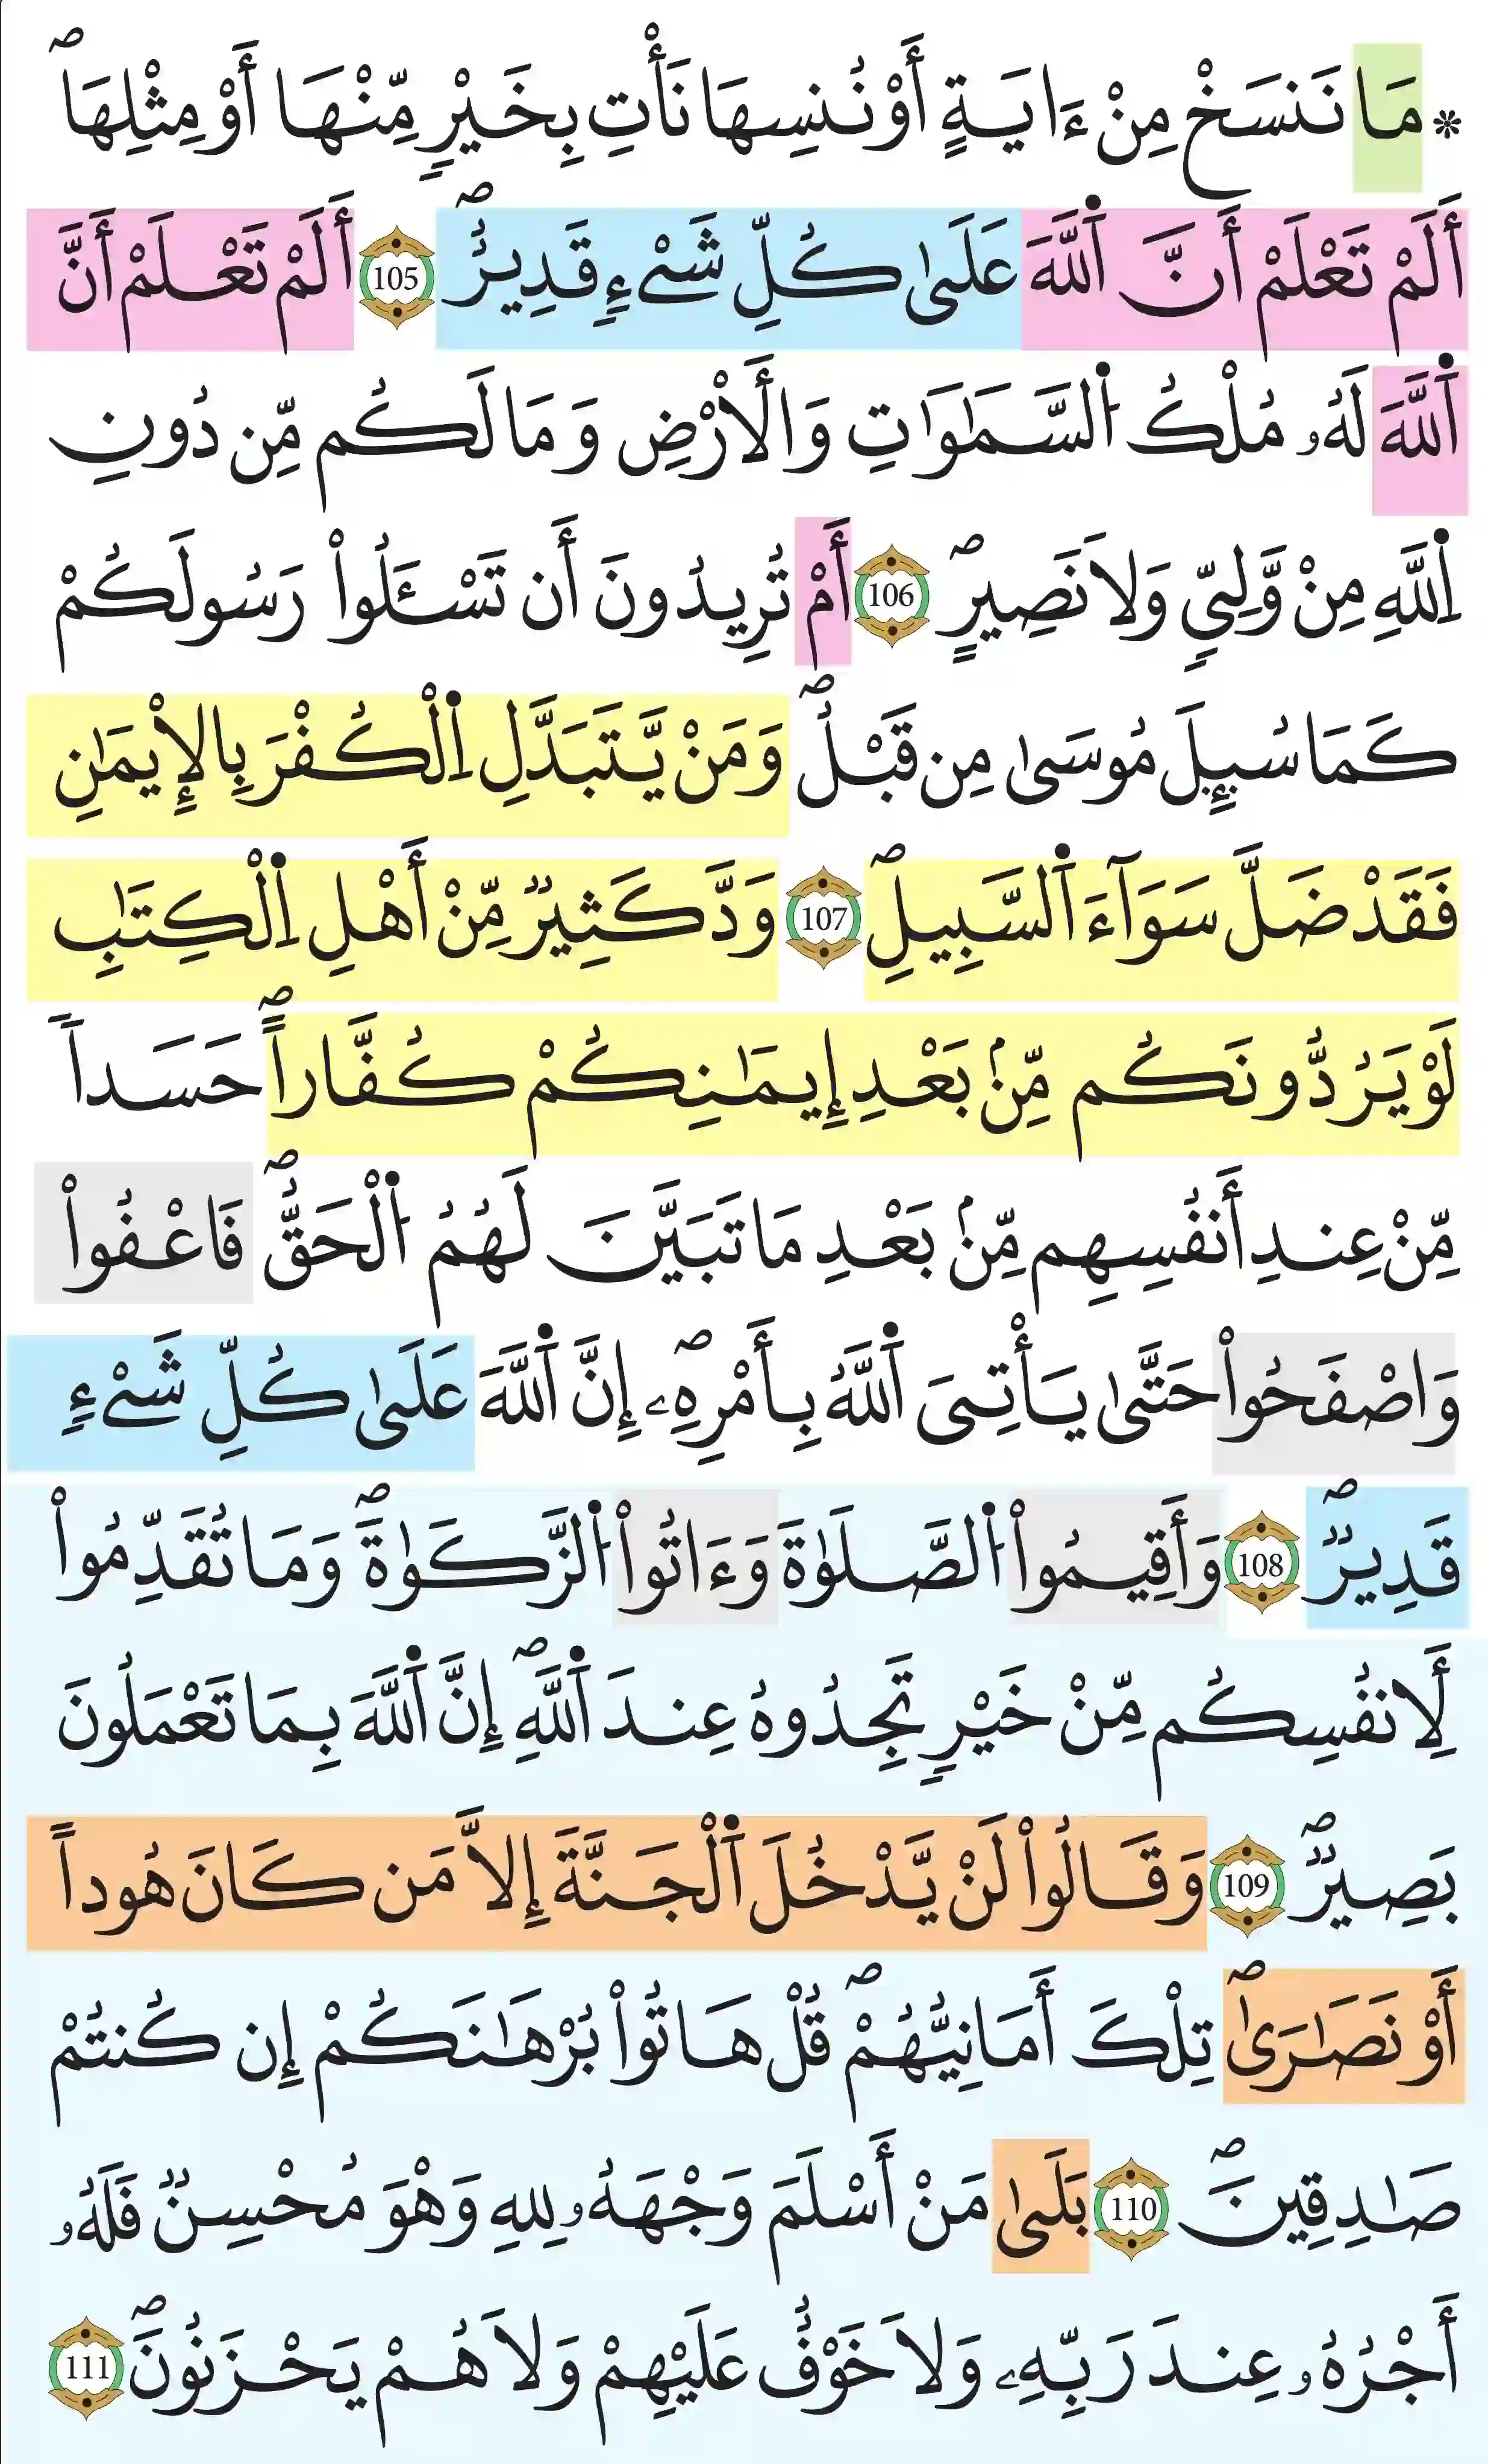 * مَا نَنسَخْ مِنْ ءَايَةٍ أَوْ نُنسِهَا نَأْتِ بِخَيْرٍ مِّنْهَا أَوْ مِثْلِهَاۖ
أَلَمْ تَعْلَمْ أَنَّ اَ۬للَّهَ عَلَىٰ كُلِّ شَےْءٍ قَدِيرٌۖ 105 أَلَمْ تَعْلَمْ أَنَّ
اَ۬للَّهَ لَهُۥ مُلْكُ اُ۬لسَّمَٰوَٰتِ وَالَارْضِ وَمَا لَكُم مِّن دُونِ
اِ۬للَّهِ مِنْ وَّلِيّٖ وَلَا نَصِيرٍۖ 106 أَمْ تُرِيدُونَ أَن تَسْـَٔلُواْ رَسُولَكُمْ
كَمَا سُئِلَ مُوسَىٰ مِن قَبْلُۖ وَمَنْ يَّتَبَدَّلِ اِ۬لْكُفْرَ بِالْإِيمَٰنِ
فَقَدْ ضَلَّ سَوَآءَ اَ۬لسَّبِيلِۖ 107 وَدَّ كَثِيرٌ مِّنْ أَهْلِ اِ۬لْكِتَٰبِ
لَوْ يَرُدُّونَكُم مِّنۢ بَعْدِ إِيمَٰنِكُمْ كُفَّاراًۖ حَسَداً
مِّنْ عِندِ أَنفُسِهِم مِّنۢ بَعْدِ مَا تَبَيَّنَ لَهُمُ اُ۬لْحَقُّۖ فَاعْفُواْ
وَاصْفَحُواْ حَتَّىٰ يَأْتِىَ اَ۬للَّهُ بِأَمْرِهِۦۖ إِنَّ اَ۬للَّهَ عَلَىٰ كُلِّ شَےْءٍ
قَدِيرٌۖ 108 وَأَقِيمُواْ اُ۬لصَّلَوٰةَ وَءَاتُواْ اُ۬لزَّكَوٰةَۖ وَمَا تُقَدِّمُواْ
لِأَنفُسِكُم مِّنْ خَيْرٍ تَجِدُوهُ عِندَ اَ۬للَّهِۖ إِنَّ اَ۬للَّهَ بِمَا تَعْمَلُونَ
بَصِيرٌۖ 109 وَقَالُواْ لَنْ يَّدْخُلَ اَ۬لْجَنَّةَ إِلَّا مَن كَانَ هُوداً
أَوْ نَصَٰرَىٰۖ تِلْكَ أَمَانِيُّهُمْۖ قُلْ هَاتُواْ بُرْهَٰنَكُمْ إِن كُنتُمْ
صَٰدِقِينَۖ 110 بَلَىٰ مَنْ أَسْلَمَ وَجْهَهُۥ لِلهِ وَهْوَ مُحْسِنٌ فَلَهُۥ
أَجْرُهُۥ عِندَ رَبِّهِۦ وَلَا خَوْفٌ عَلَيْهِمْ وَلَا هُمْ يَحْزَنُونَۖ 111